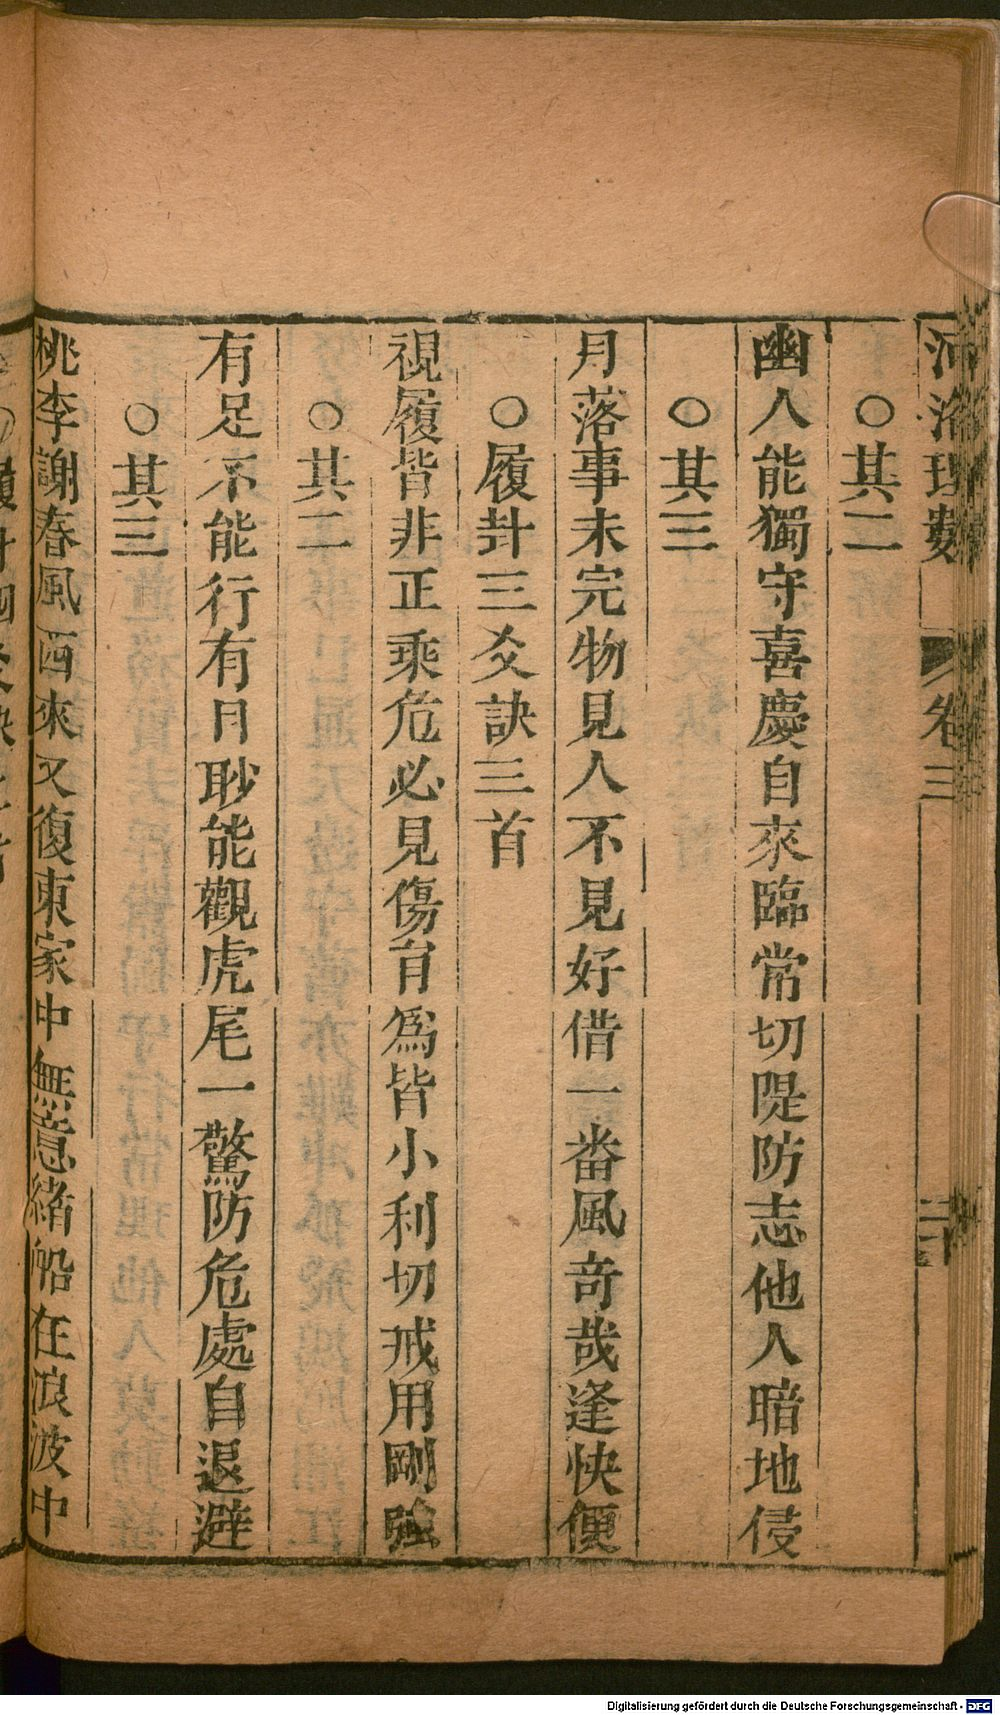 河洛理數 卷三 二十
○其二
幽人能獨守喜慶自來臨常切隄防志他人暗地侵
○其三
月落事未完物見人不見好借一畨風竒哉逢快便
○履卦三爻訣三首
視履皆非正乘危必見傷有爲皆小利切戒用剛強
○其二
有足不能行有目眇能觀虎尾一驚防危處自退避
○其三
桃李謝春風西來又復東家中無意緒船在浪波中
Digitalisierung gefördert durch die Deutsche Forschungsgemeinschaft - DFG